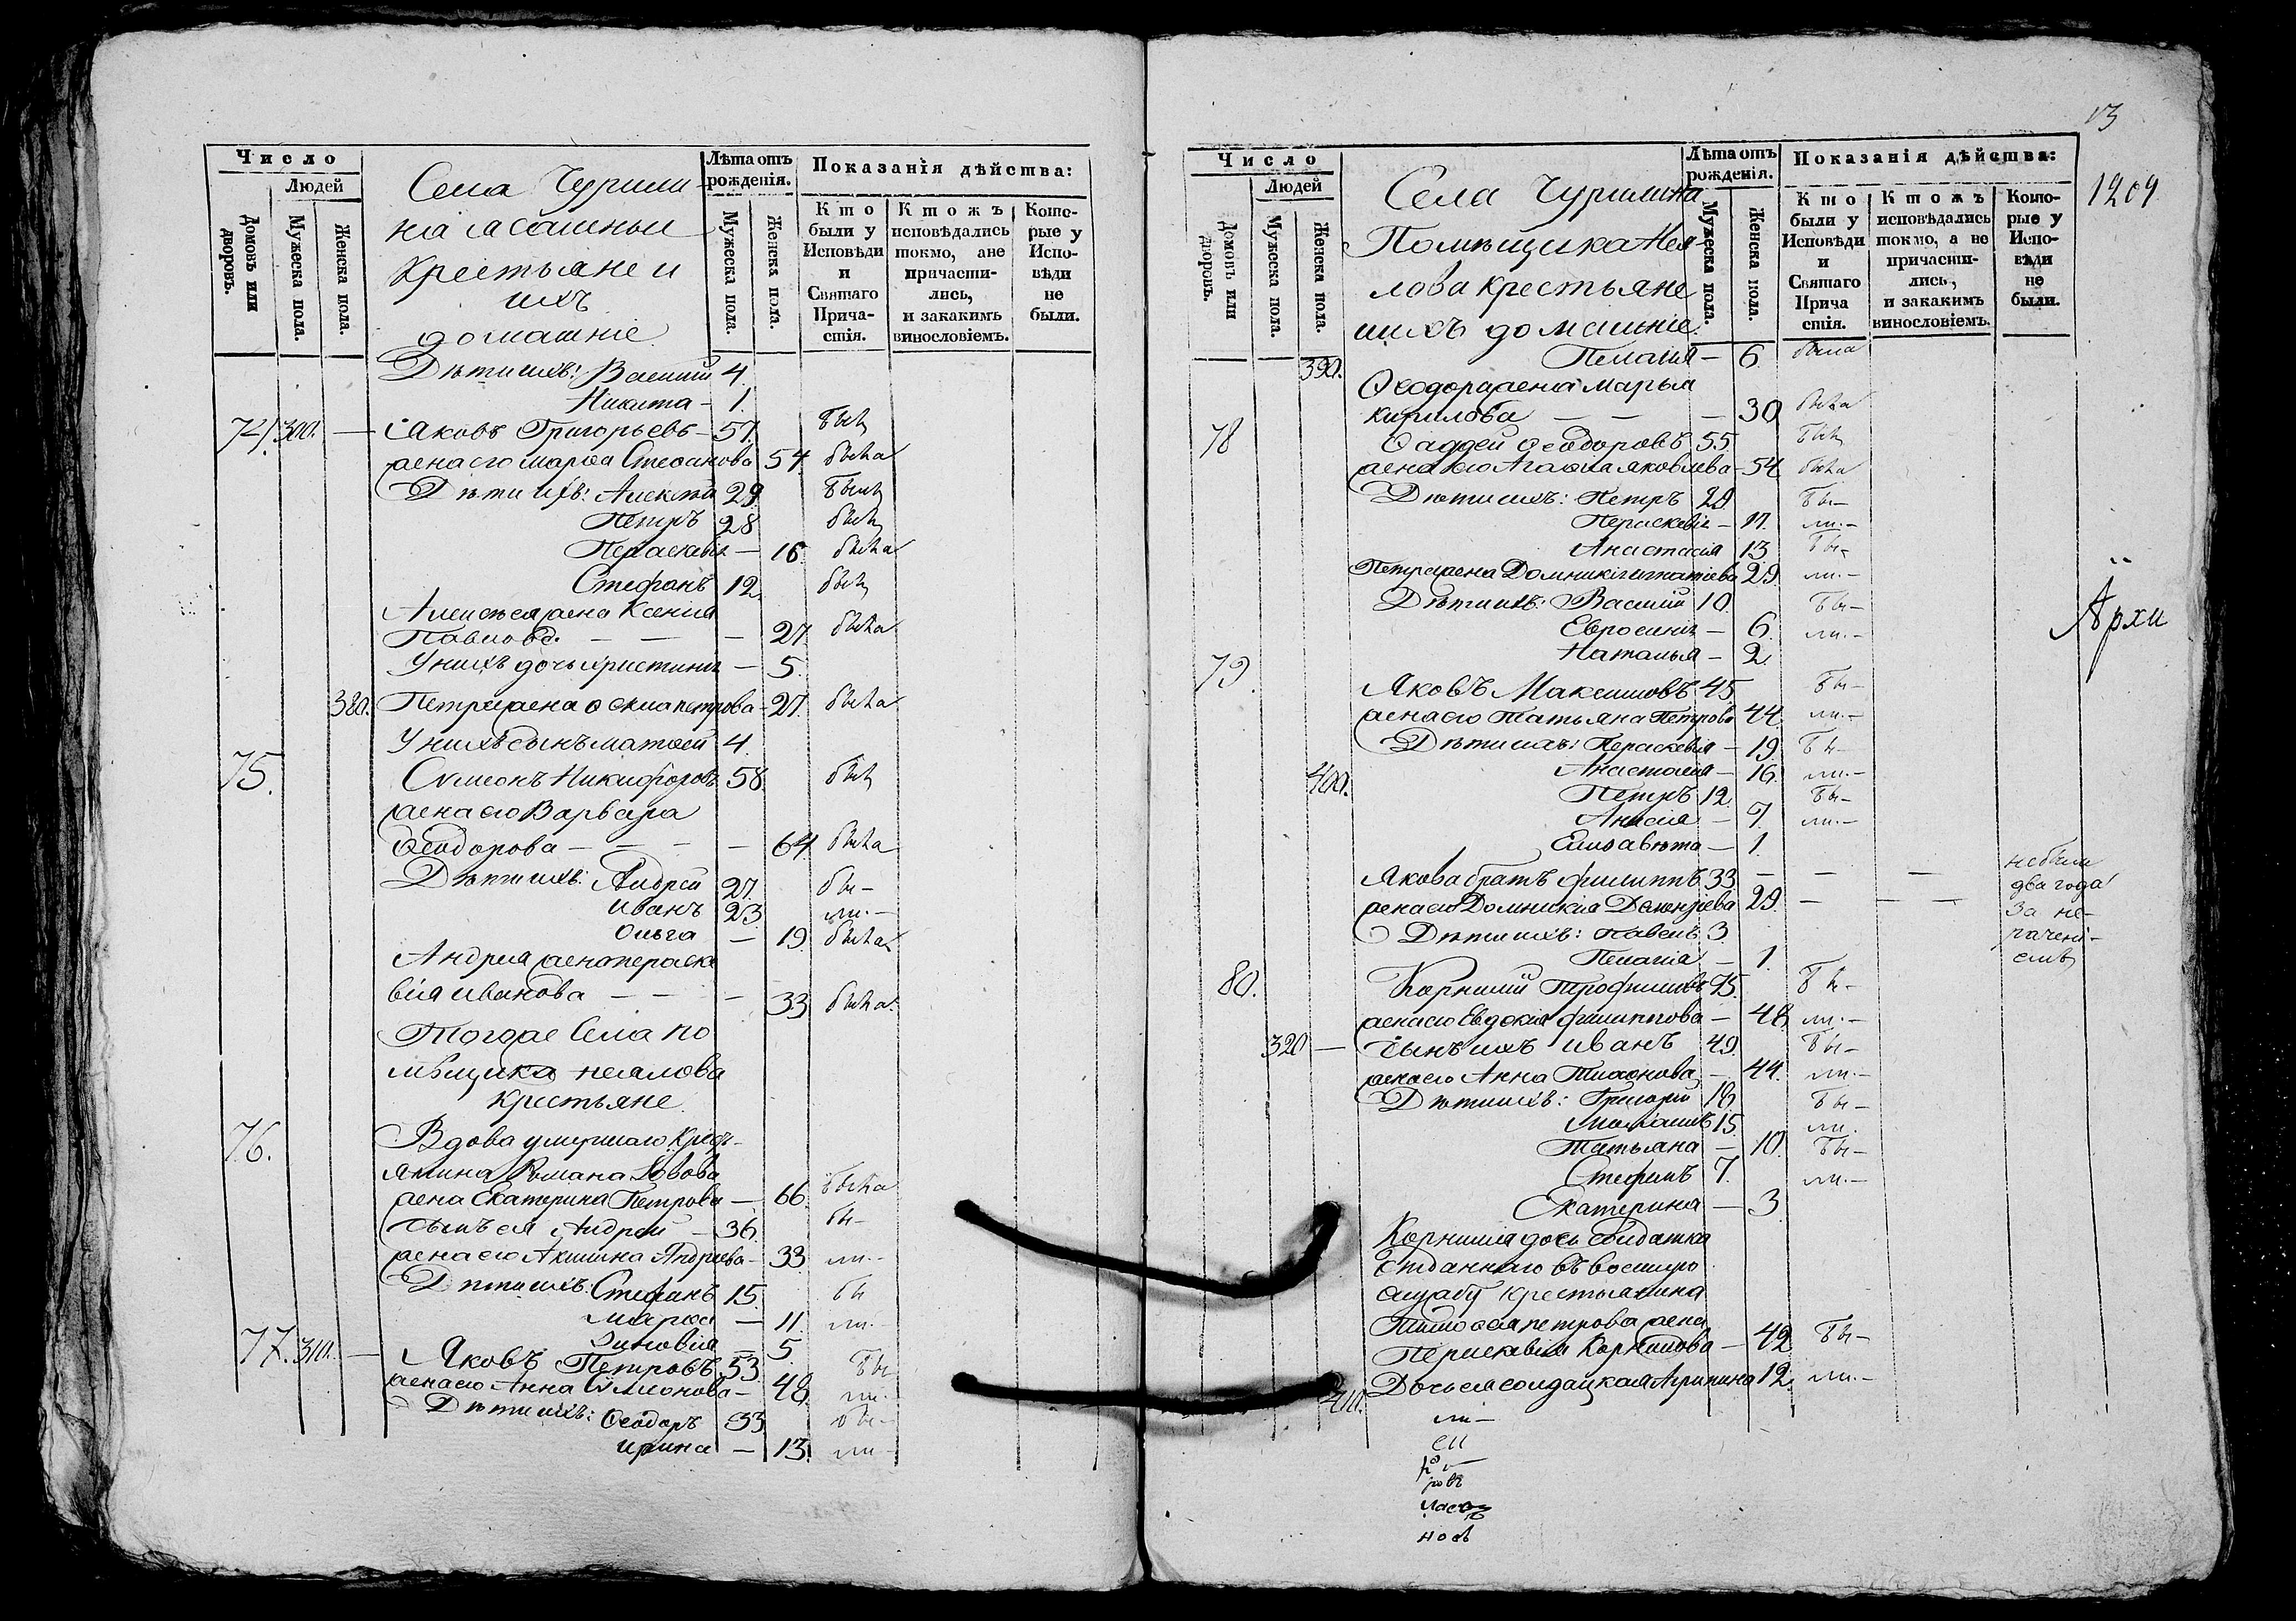 Число
Людей
Домовъ или дворовъ.
Мужеска пола.
Женска пола.
Села Чурили
на ясашныи
Крестьяне и
ихъ
домашніе
Лѣта отъ рожденія.
Мужеска пола.
Женска пола.
Показанія дѣйства:
Кто были у Исповѣди и Святаго Прича-стія.
Ктожъ исповѣдались токмо, ане причасти-лись, и закакимъ винословіемъ.
Кото-рые у Испо-вѣди не были.
Дѣти ихъ: Василій 4
Никита – 1.
74. 300. — Іаковъ Григорьевъ – 57. былъ
жена его Марѳа Стефанова 54 была
Дѣти ихъ: 29. былъ
Петръ 28 былъ
Параскевія – 16. была
Стефанъ 12. былъ
жена Ксенія
Павлова – – – 27. была
У нихъ дочь Христина – 5.
380. Петра жена Ѳекла Петрова – 27. была
У нихъ сынъ Матѳей 4.
75. Сѵмеонъ Никифоровъ 58 былъ
жена его Варвара
Ѳеодорова – – – – 64 была
Дѣти ихъ: Андрей 27. бы–
Иванъ 23 ли.–
Ольга – 19 была
Андрея жена Параске
вія Иванова – – – 33 была.
Тогоже Села по
мѣщика Неялова
крестьяне.
76. Вдова умершаго Кресть-
янина Романа
жена Екатерина Петрова – 66. была
Сынъ ея Андрей – 36. бы–
жена его Акилина Андреева – 33 ли.–
Дѣти ихъ: Стефанъ 15. бы
Марѳа – 11. ли.–
Зиновія – 5.
77. 310. — Яковъ Петровъ 53. бы
жена его Анна Сѵмеонова – 48. ли.–
Дѣти ихъ: Ѳеодоръ 33 бы–
Ирина – 13. ли–
13
1209
Число
Людей
Домовъ или дворовъ.
Мужеска пола.
Женска пола.
Села Чурилина
Помѣщика Нея-
лова крестьяне
и ихъ домашніе
Лѣта отъ рожденія.
Мужеска пола.
Женска пола.
Показанія дѣйства:
Кто были у Исповѣди и Святаго Прича стія.
Ктожъ исповѣдались токмо, а не причасти-лись, и закакимъ винословіемъ.
Кото-рые у Испо-вѣди не были.
390. Пелагія – 6 была
Ѳеодора жена Марья
Кирилова – – – 30 была
78 Ѳаддей Ѳеодоровъ 55. былъ
жена его Агаѳія Яковлева – 54 была
Дѣти ихъ: Петръ 29. бы–
Параскевія – 17. ли.–
Анастасія 13 бы–
Петра жена Домникія Игнатіева 29. ли.–
Дѣти ихъ: Василій 10. бы–
Евросинія – 6. ли.–
Наталья – 2.
Архи
79. Яковъ Максимовъ 45 бы–
жена его Татьяна Петрова 44 ли.–
Дѣти ихъ: Параскевія – 19 бы–
400. Анастасія – 16. ли.–
Петръ 12. бы–
Анисія – 7. ли.–
Елисавета – 1.
Якова братъ Филиппъ 33. – – –
жена его Домникія 29. – – –
Дѣти ихъ: Павелъ 3.
Пелагія – 1.
не были
два года
за не-
рачені-
емъ
80. Корнилій Трофимовъ 75. бы–
жена его Евдокія Филиппова – 48 ли.–
320 — Сынъ ихъ Иванъ 49. бы–
жена его Анна Тихонова – 44. ли.–
Дѣти ихъ: Григорій 18. бы–
15. ли.
Татьяна – 10. бы–
Стефанъ 7. ли.–
Екатерина – 3
Корнилія дочь солдатка
отданнаго въ военную
службу крестьянина
Тимоѳея Петрова жена
Параскевія Корнилова – 42 бы–
410. Дочь ея солдацкая Агрипина 12. ли.–